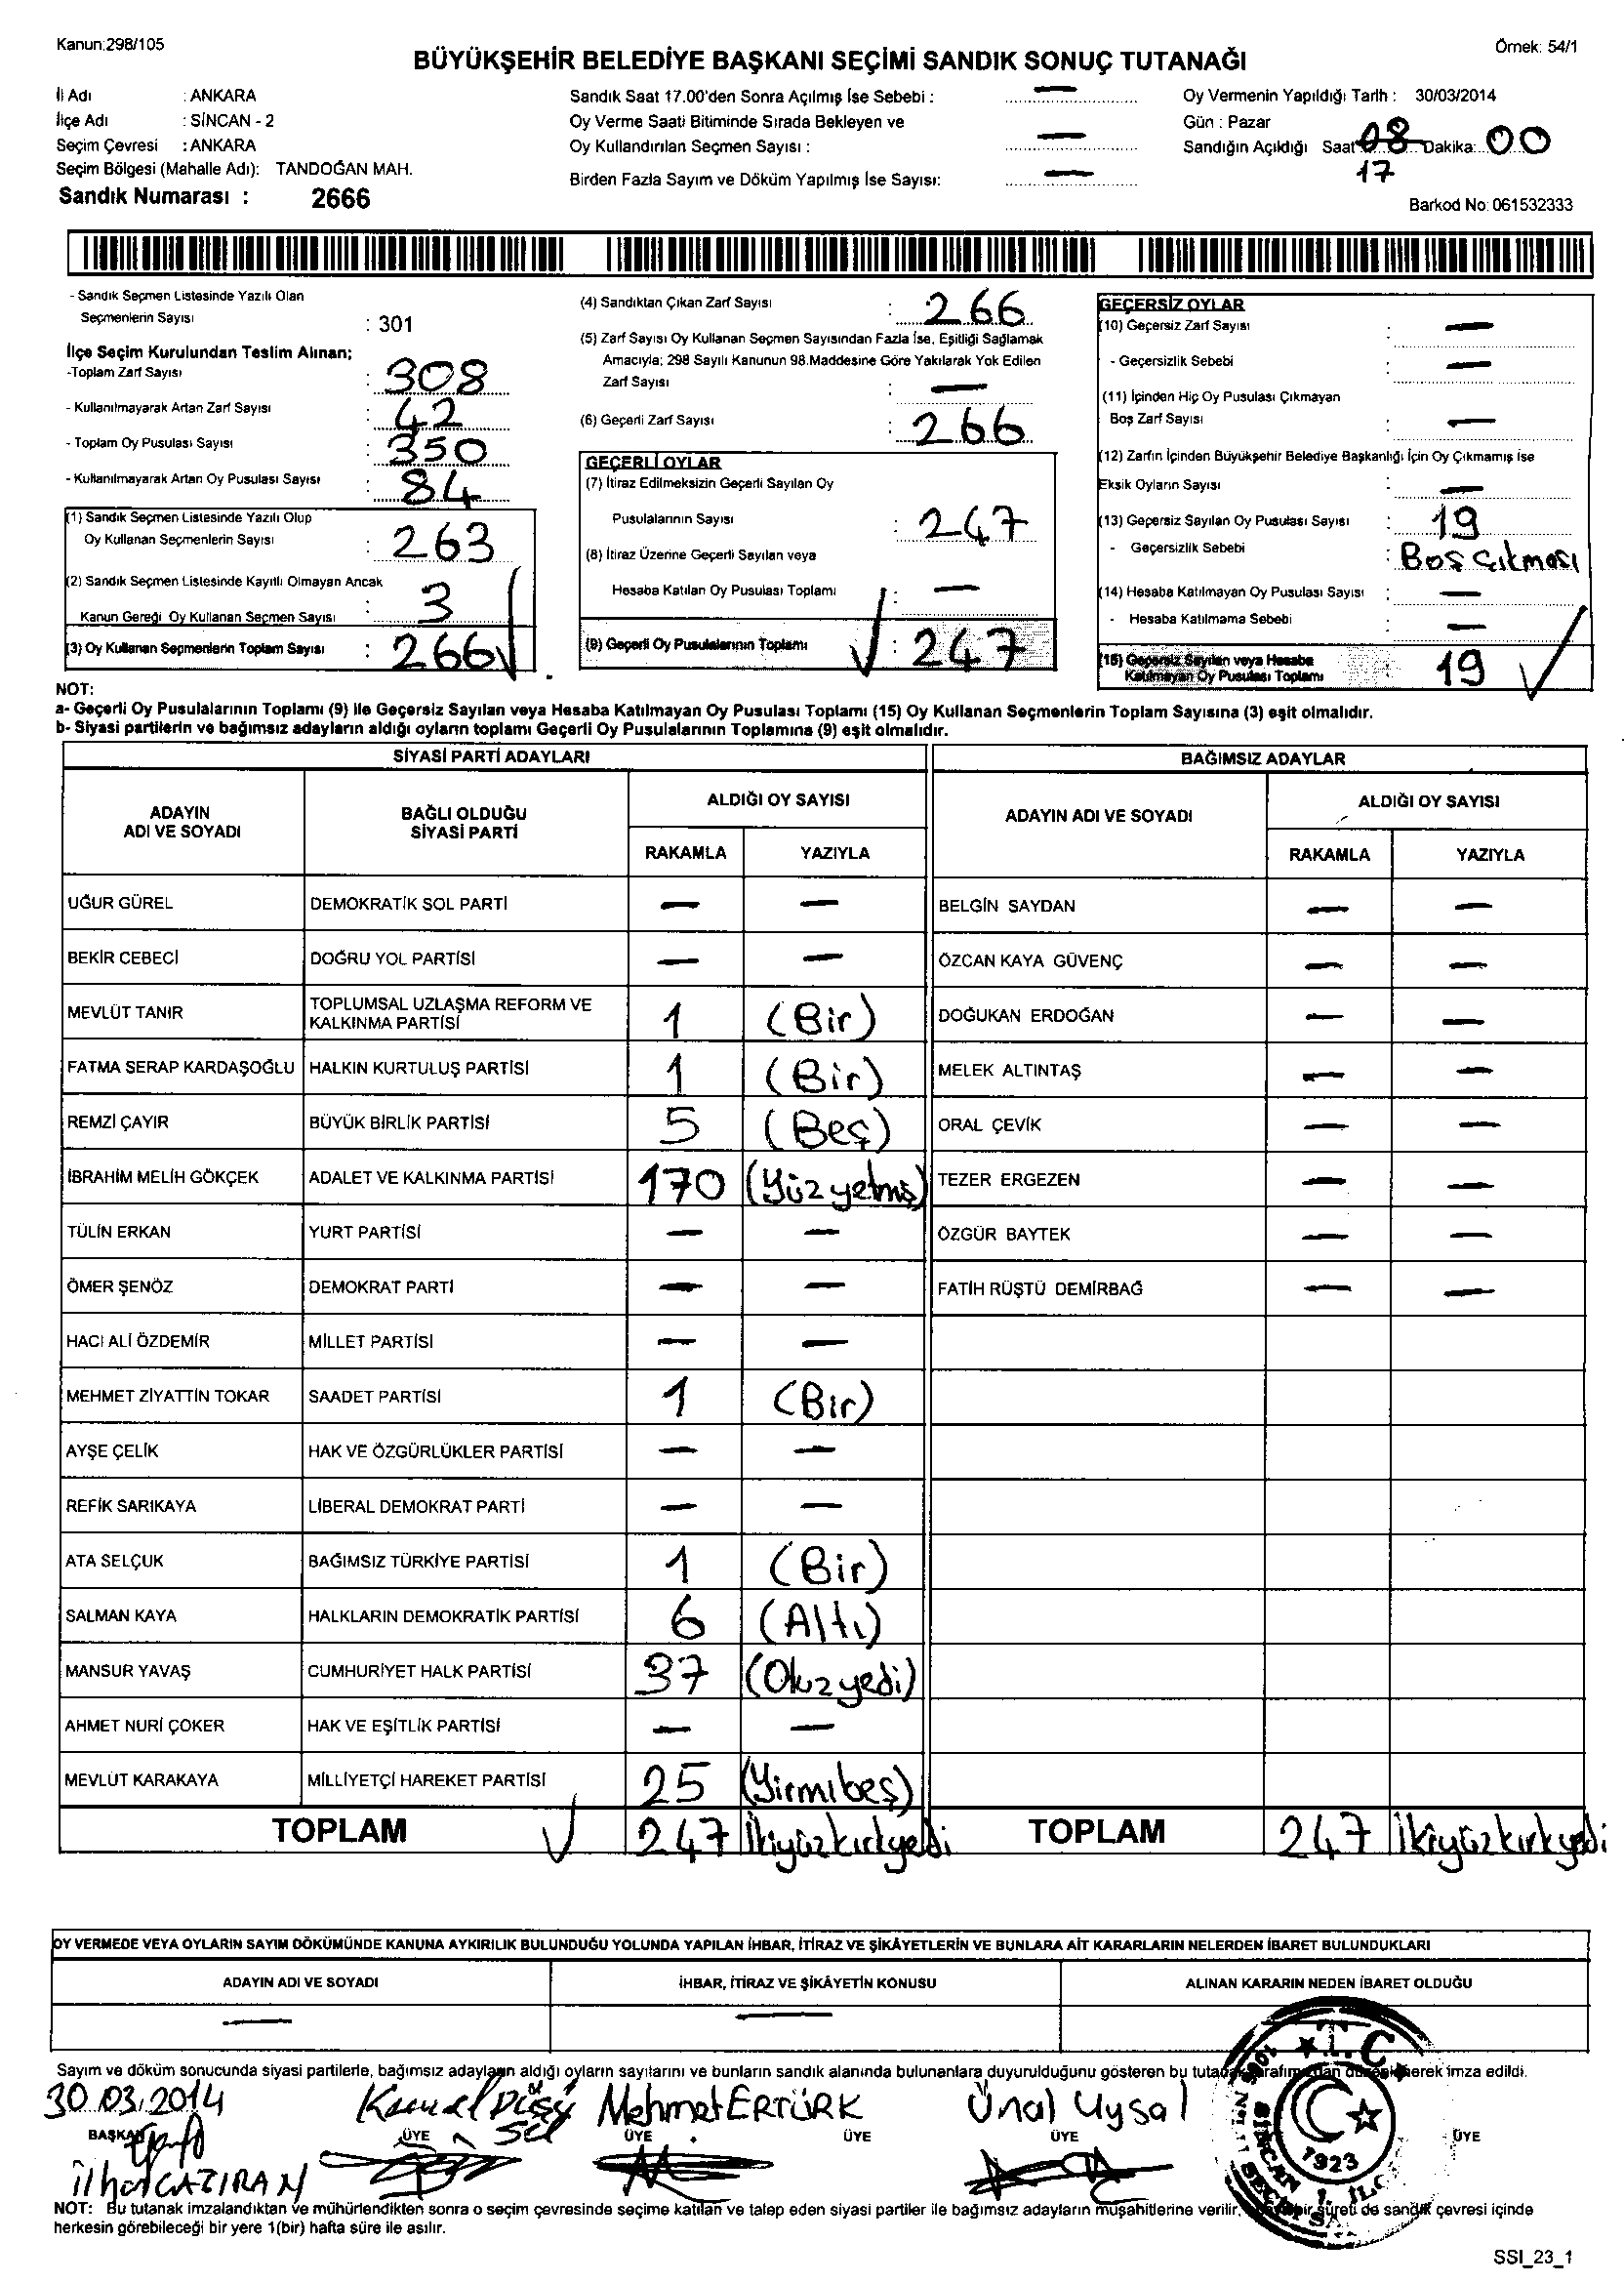 Kanun:298/105
Örnek: 54/1
BÜYÜKŞEHİR BELEDİYE BAŞKANI SEÇİMİ SANDIK SONUÇ TUTANAĞI
İl Adı : ANKARA
İlçe Adı : SİNCAN - 2
Seçim Çevresi : ANKARA
Seçim Bölgesi (Mahalle Adı): TANDOĞAN MAH.
Sandık Numarası : 2666
Sandık Saat 17.00'den Sonra Açılmış İse Sebebi : —
Oy Verme Saati Bitiminde Sırada Bekleyen ve
Oy Kullandırılan Seçmen Sayısı : —
Birden Fazla Sayım ve Döküm Yapılmış İse Sayısı: —
Oy Vermenin Yapıldığı Tarih : 30/03/2014
Gün : Pazar
Sandığın Açıldığı Saat 08 Dakika: 00
17
Barkod No: 061532333
- Sandık Seçmen Listesinde Yazılı Olan
Seçmenlerin Sayısı : 301
İlçe Seçim Kurulundan Teslim Alınan;
-Toplam Zarf Sayısı : 308
- Kullanılmayarak Artan Zarf Sayısı : 42
- Toplam Oy Pusulası Sayısı : 350
- Kullanılmayarak Artan Oy Pusulası Sayısı : 84
(1) Sandık Seçmen Listesinde Yazılı Olup
Oy Kullanan Seçmenlerin Sayısı : 263
(2) Sandık Seçmen Listesinde Kayıtlı Olmayan Ancak
Kanun Gereği Oy Kullanan Seçmen Sayısı : 3
(3) Oy Kullanan Seçmenlerin Toplam Sayısı : 266
(4) Sandıktan Çıkan Zarf Sayısı : 266
(5) Zarf Sayısı Oy Kullanan Seçmen Sayısından Fazla İse, Eşitliği Sağlamak
Amacıyla; 298 Sayılı Kanunun 98.Maddesine Göre Yakılarak Yok Edilen
Zarf Sayısı : —
(6) Geçerli Zarf Sayısı : 266
GEÇERLİ OYLAR
(7) İtiraz Edilmeksizin Geçerli Sayılan Oy
Pusulalarının Sayısı : 247
(8) İtiraz Üzerine Geçerli Sayılan veya
Hesaba Katılan Oy Pusulası Toplamı : —
(9) Geçerli Oy Pusulalarının Toplamı : 247
GEÇERSİZ OYLAR
(10) Geçersiz Zarf Sayısı : —
- Geçersizlik Sebebi : —
(11) İçinden Hiç Oy Pusulası Çıkmayan
Boş Zarf Sayısı : —
(12) Zarfın İçinden Büyükşehir Belediye Başkanlığı İçin Oy Çıkmamış ise
Eksik Oyların Sayısı : —
(13) Geçersiz Sayılan Oy Pusulası Sayısı : 19
- Geçersizlik Sebebi : Boş çıkması
(14) Hesaba Katılmayan Oy Pusulası Sayısı : —
- Hesaba Katılmama Sebebi : —
(15) Geçersiz Sayılan veya Hesaba
Katılmayan Oy Pusulası Toplamı : 19
NOT:
a- Geçerli Oy Pusulalarının Toplamı (9) ile Geçersiz Sayılan veya Hesaba Katılmayan Oy Pusulası Toplamı (15) Oy Kullanan Seçmenlerin Toplam Sayısına (3) eşit olmalıdır.
b- Siyasi partilerin ve bağımsız adayların aldığı oyların toplamı Geçerli Oy Pusulalarının Toplamına (9) eşit olmalıdır.
SİYASİ PARTİ ADAYLARI
ADAYIN ADI VE SOYADI BAĞLI OLDUĞU SİYASİ PARTİ ALDIĞI OY SAYISI
RAKAMLA YAZIYLA
UĞUR GÜREL DEMOKRATİK SOL PARTİ — —
BEKİR CEBECİ DOĞRU YOL PARTİSİ — —
MEVLÜT TANIR TOPLUMSAL UZLAŞMA REFORM VE KALKINMA PARTİSİ 1 (Bir)
FATMA SERAP KARDAŞOĞLU HALKIN KURTULUŞ PARTİSİ 1 (Bir)
REMZİ ÇAYIR BÜYÜK BİRLİK PARTİSİ 5 (Beş)
İBRAHİM MELİH GÖKÇEK ADALET VE KALKINMA PARTİSİ 170 (Yüzyetmş)
TÜLİN ERKAN YURT PARTİSİ — —
ÖMER ŞENÖZ DEMOKRAT PARTİ — —
HACI ALİ ÖZDEMİR MİLLET PARTİSİ — —
MEHMET ZİYATTİN TOKAR SAADET PARTİSİ 1 (Bir)
AYŞE ÇELİK HAK VE ÖZGÜRLÜKLER PARTİSİ — —
REFİK SARIKAYA LİBERAL DEMOKRAT PARTİ — —
ATA SELÇUK BAĞIMSIZ TÜRKİYE PARTİSİ 1 (Bir)
SALMAN KAYA HALKLARIN DEMOKRATİK PARTİSİ 6 (Altı)
MANSUR YAVAŞ CUMHURİYET HALK PARTİSİ 37 (Otuzyedi)
AHMET NURİ ÇOKER HAK VE EŞİTLİK PARTİSİ — —
MEVLÜT KARAKAYA MİLLİYETÇİ HAREKET PARTİSİ 25 (Yirmibeş)
TOPLAM 247 İkiyüzkırkyedi
BAĞIMSIZ ADAYLAR
ADAYIN ADI VE SOYADI ALDIĞI OY SAYISI
RAKAMLA YAZIYLA
BELGİN SAYDAN — —
ÖZCAN KAYA GÜVENÇ — —
DOĞUKAN ERDOĞAN — —
MELEK ALTINTAŞ — —
ORAL ÇEVİK — —
TEZER ERGEZEN — —
ÖZGÜR BAYTEK — —
FATİH RÜŞTÜ DEMİRBAĞ — —
TOPLAM 247 İkiyüzkırkyedi
OY VERMEDE VEYA OYLARIN SAYIM DÖKÜMÜNDE KANUNA AYKIRILIK BULUNDUĞU YOLUNDA YAPILAN İHBAR, İTİRAZ VE ŞİKÂYETLERİN VE BUNLARA AİT KARARLARIN NELERDEN İBARET BULUNDUKLARI
ADAYIN ADI VE SOYADI İHBAR, İTİRAZ VE ŞİKÂYETİN KONUSU ALINAN KARARIN NEDEN İBARET OLDUĞU
— —
Sayım ve döküm sonucunda siyasi partilerle, bağımsız adayların aldığı oyların sayılarını ve bunların sandık alanında bulunanlara duyurulduğunu gösteren bu tutanak tarafımızdan düzenlenerek imza edildi.
30.03.2014 Mehmet ERTÜRK Ünal Uysal
BAŞKAN ÜYE ÜYE ÜYE ÜYE ÜYE
T.C.
1923
SİNCAN 1. İLÇE
NOT: Bu tutanak imzalandıktan ve mühürlendikten sonra o seçim çevresinde seçime katılan ve talep eden siyasi partiler ile bağımsız adayların müşahitlerine verilir, bir süreti de sandık çevresi içinde
herkesin görebileceği bir yere 1(bir) hafta süre ile asılır.
SSI_23_1